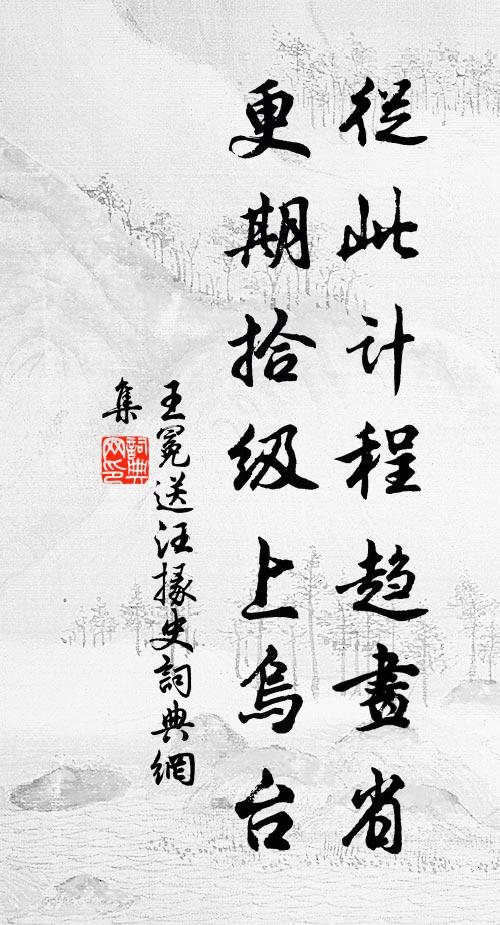 從此计程趋畫省
更期拾级上烏台
王冕送汪掾史詞典網
集
詞典
网印